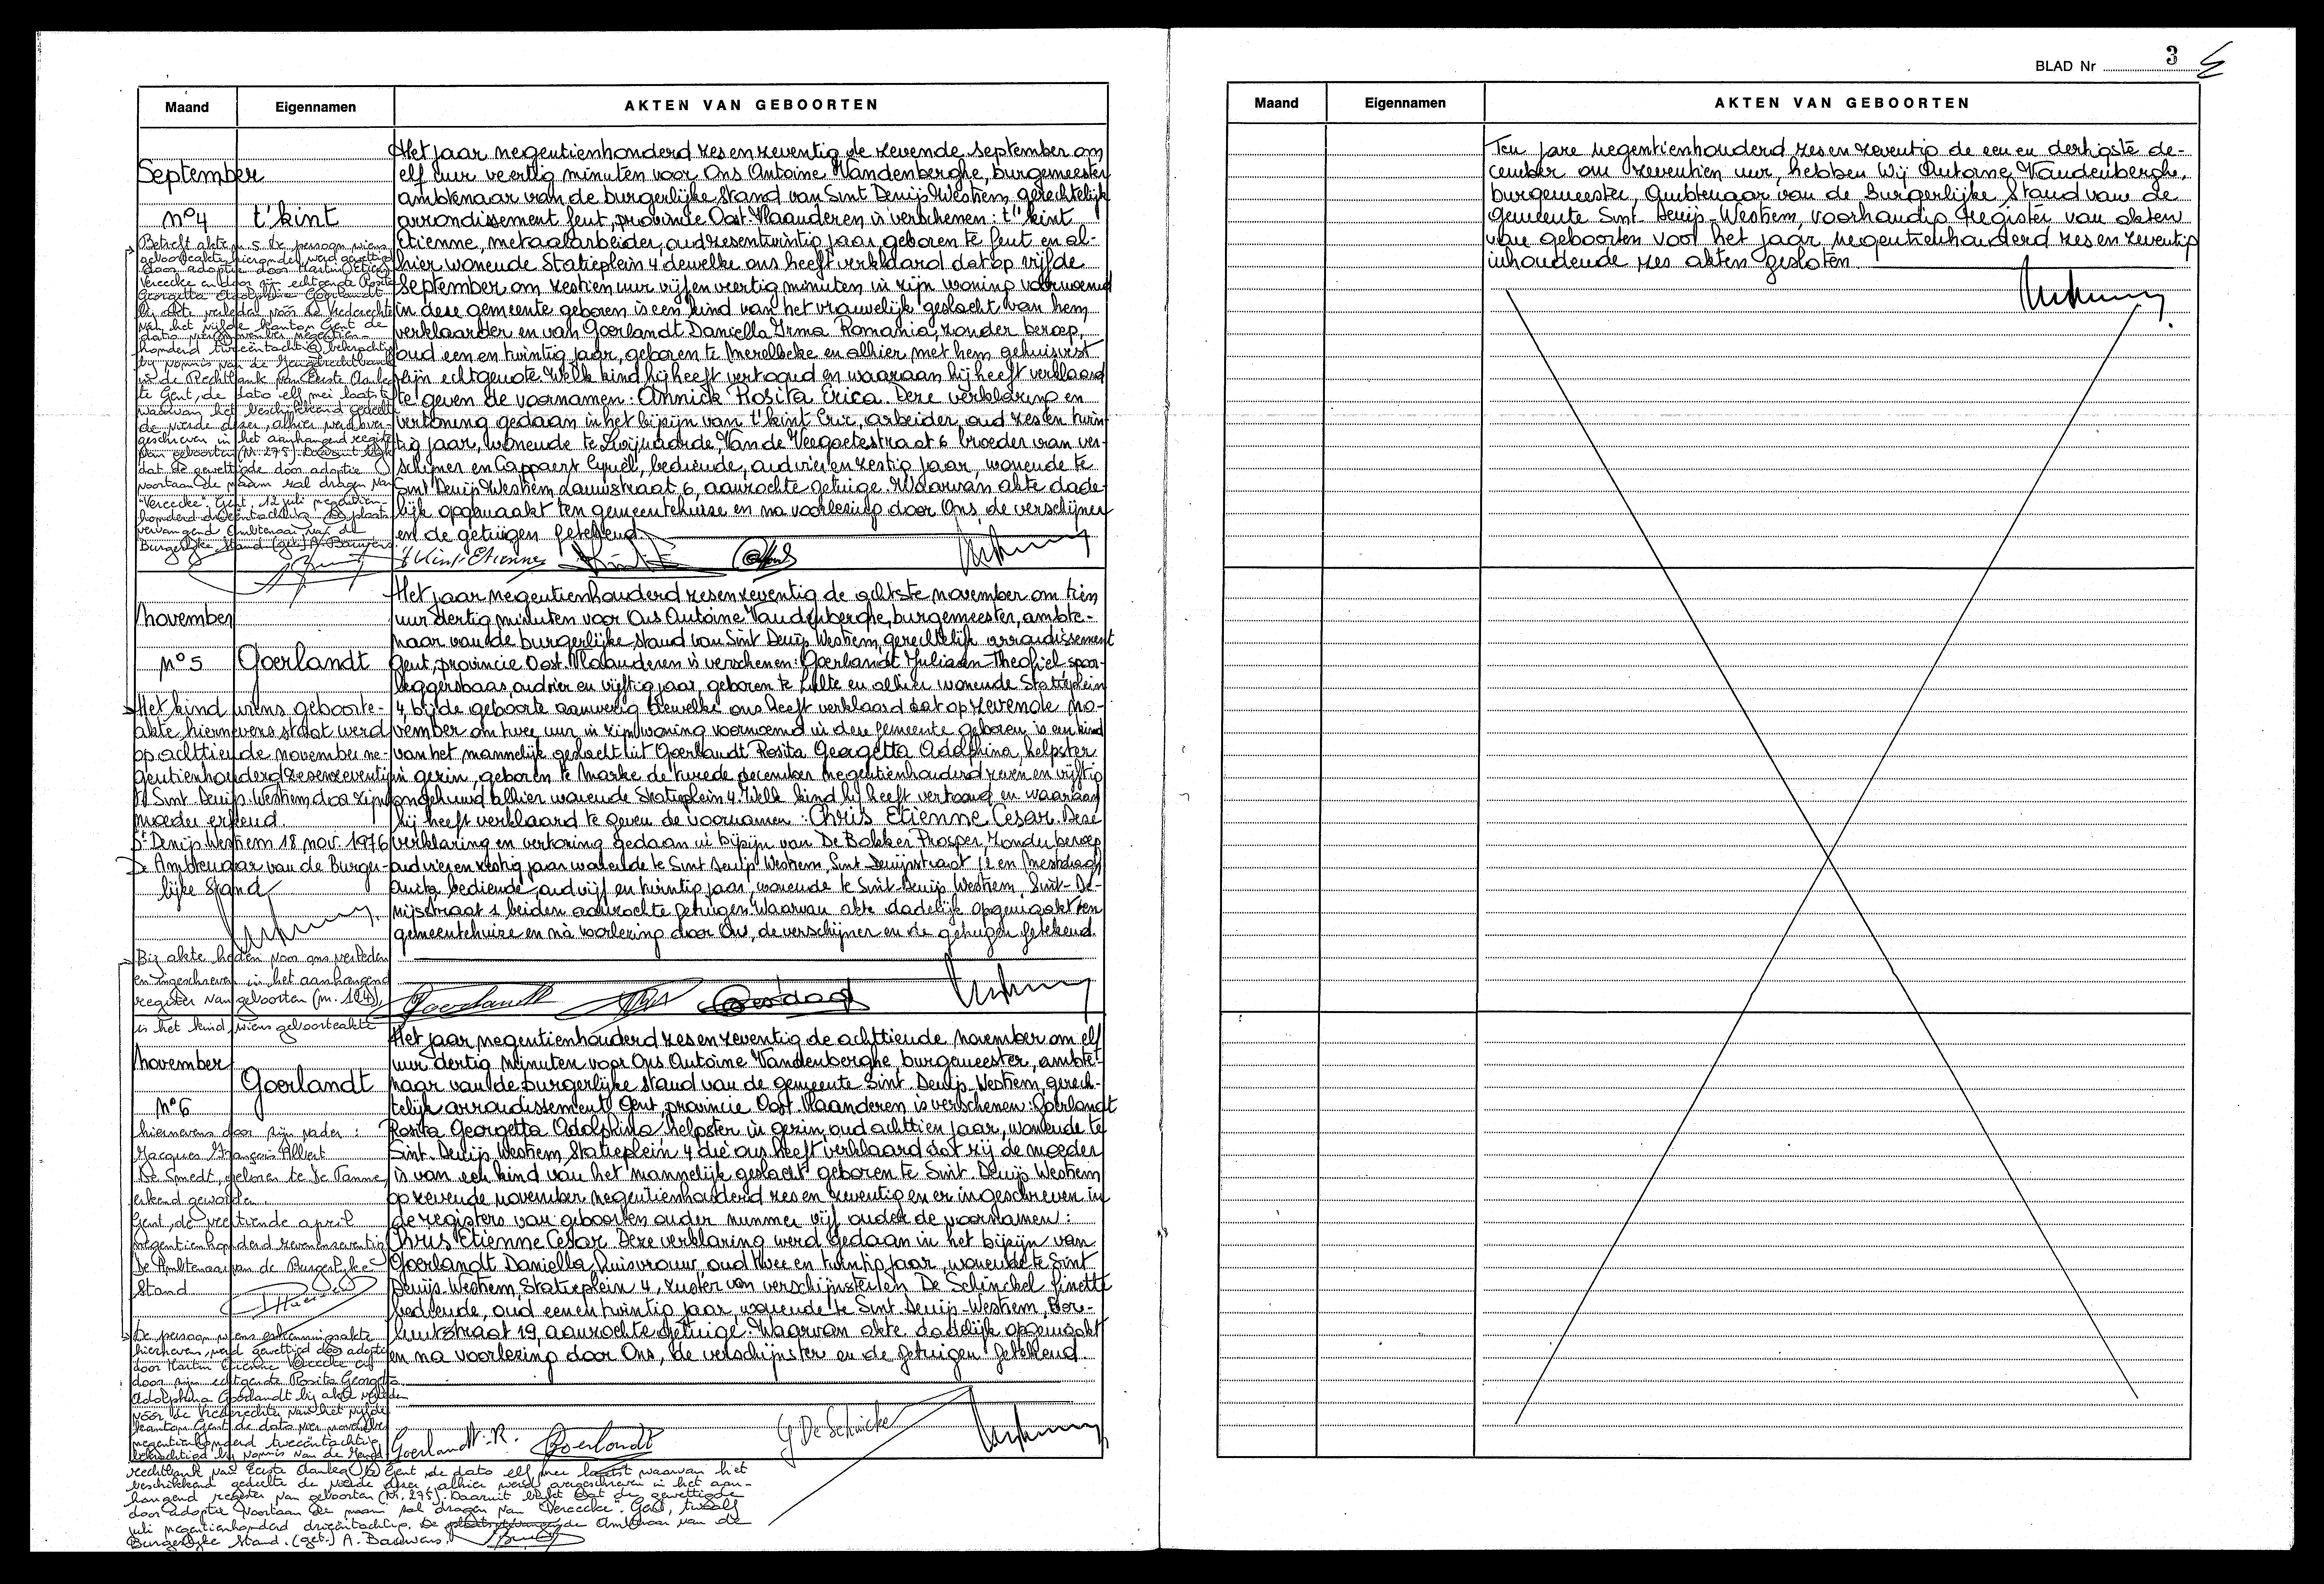 Maand
Eigennamen
AKTEN VAN GEBOORTEN
September
nº4
t'kint
Het jaar negentienhonderd zes en zeventig de zevende september om
elf uur veertig minuten voor Ons Antoine Vandenberghe, burgemeester
ambtenaar van de burgerlijke stand van Sint Denijs Westrem, gerechtelijk
arrondissement Gent, provincie Oost-Vlaanderen is verschenen: t'kint
Etienne, metaalarbeider, oud zesentwintig jaar, geboren te Gent en al-
hier wonende Statieplein 4 dewelke ons heeft verklaard dat op vijfde
september om zestien uur vijf en veertig minuten in zijn woning voornoemd
in deze gemeente geboren is een kind van het vrouwelijk geslacht van hem
verklaarder en van Goerlandt Daniella Irma Romania, zonder beroep,
oud een en twintig jaar, geboren te Merelbeke en alhier met hem gehuisvest
zijn echtgenote. Welk kind hij heeft vertoond en waaraan hij heeft verklaard
te geven de voornamen: Annick Rosita Erica. Deze verklaring en
vertoning gedaan in het bijzijn van t'kint Eric, arbeider, oud zes en twin-
tig jaar, wonende te Zwijnaarde, Van de Veegaetestraat 6 broeder van ver-
schijner en Cappaert Cyriel, bediende, oud vier en zestig jaar, wonende te
Sint Denijs Westrem, Lauwstraat 6, aanzochte getuige. Waarvan akte dade-
lijk opgemaakt ten gemeentehuize en na voorlezing door Ons, de verschijner
en de getuigen getekend.
t'Kint Etienne
Betreft akte n 5. De persoon wiens
geboorteakte hieronder, werd gewettigd
door adoptie door Martin Etienne
Vereecke en door zijn echtgenote Rosita
Georgetta Adolphina Goerlandt
bij akte verleden vóór de Vrederechter
van het vijfde kanton Gent de
dato vier november negentien-
honderd tweeëntachtig bekrachtigd
bij vonnis van de Jeugdrechtbank
in de Rechtbank van Eerste Aanleg
te Gent, de dato elf mei laatst
waarvan het beschikkend gedeelte
de vierde dezer, alhier werd over-
geschreven in het aanhangend register
van geboorten (Nr. 275). Daaruit blijkt
dat de gewettigde door adoptie
voortaan de naam zal dragen van
"Vereecke". Gent, 12 juli negentien-
honderd drieëntachtig. De plaats-
vervangend Ambtenaar van de
Burgerlijke Stand. (get.) A. Bauwens
november
nº5
Goerlandt
Het jaar negentienhonderd zes en zeventig de achtste november om tien
uur dertig minuten voor Ons Antoine Vandenberghe, burgemeester, ambte-
naar van de burgerlijke stand van Sint Denijs Westrem, gerechtelijk arrondissement
Gent, provincie Oost-Vlaanderen is verschenen: Goerlandt Juliaan Theofiel spoor-
leggersbaas, oud vier en vijftig jaar, geboren te Hulte en alhier wonende Statieplein
4, bij de geboorte aanwezig dewelke ons heeft verklaard dat op zevende no-
vember om twee uur in zijn woning voornoemd in deze gemeente geboren is een kind
van het mannelijk geslacht uit Goerlandt Rosita Georgetta Adolphina, helpster
in gezin, geboren te Marke de tweede december negentienhonderd zeven en vijftig
ongehuwd alhier wonende Statieplein 4. Welk kind hij heeft vertoond en waaraan
hij heeft verklaard te geven de voornamen: Chris Etienne Cesar. Deze
verklaring en vertoning gedaan in bijzijn van De Bakker Prosper, zonder beroep
oud vier en zestig jaar wonende te Sint Denijs Westrem, Sint Denijsstraat 12 en Mestdagh
Anita, bediende, oud vijf en twintig jaar, wonende te Sint Denijs Westrem, Sint-De-
nijsstraat 1 beiden aanzochte getuigen. Waarvan akte dadelijk opgemaakt ten
gemeentehuize en na voorlezing door Ons, de verschijner en de getuigen getekend.
Goerlandt
Mestdagh
Het kind wiens geboorte-
akte hiernevens staat werd
op achttiende november ne-
gentienhonderd zes en zeventig
te Sint Denijs-Westrem door zijn
moeder erkend.
St Denijs Westrem 18 nov. 1976
De Ambtenaar van de Burger-
lijke Stand
Bij akte heden voor ons verleden
en ingeschreven in het aanhangend
register van geboorten (nr. 124),
is het kind, wiens geboorteakte
november
nº6
Goerlandt
Het jaar negentienhonderd zes en zeventig de achttiende november om elf
uur dertig minuten voor Ons Antoine Vandenberghe, burgemeester, ambte-
naar van de burgerlijke stand van de gemeente Sint Denijs Westrem, gerech-
telijk arrondissement Gent provincie Oost Vlaanderen is verschenen: Goerlandt
Rosita Georgetta Adolphina, helpster in gezin, oud achttien jaar, wonende te
Sint Denijs Westrem, Statieplein 4 die ons heeft verklaard dat zij de moeder
is van een kind van het mannelijk geslacht geboren te Sint Denijs Westrem
op zevende november negentienhonderd zes en zeventig en er ingeschreven in
de registers van geboorten onder nummer vijf onder de voornamen:
Chris Etienne Cesar. Deze verklaring werd gedaan in het bijzijn van
Goerlandt Daniella, huisvrouw, oud twee en twintig jaar, wonende te Sint
Denijs Westrem, Statieplein 4, zuster van verschijnster en De Schinckel Ginette
bediende, oud een en twintig jaar, wonende te Sint Denijs-Westrem,
straat 19, aanzochte getuige. Waarvan akte dadelijk opgemaakt
en na voorlezing door Ons, de verschijnster en de getuigen getekend.
Goerlandt-R.
Goerlandt
G De Schinckel
hiernevens door zijn vader:
Jacques François Albert
De Smedt, geboren te De Panne,
erkend geworden.
Gent, de veertiende april
negentienhonderd zevenenzeventig
De Ambtenaar van de Burgerlijke
Stand
De persoon wiens erkenningsakte
hierboven, werd gewettigd door adoptie
door Martin Etienne Vereecke en
door zijn echtgenote Rosita Georgetta
Adolphina Goerlandt bij akte verleden
vóór de Vrederechter van het vijfde
kanton Gent de dato vier november
negentienhonderd tweeëntachtig
bekrachtigd bij vonnis van de Jeugd-
rechtbank van Eerste Aanleg te Gent, de dato elf mei laatst waarvan het
beschikkend gedeelte de vierde dezer alhier werd overgeschreven in het aan-
hangend register van geboorten (Nr. 275). Daaruit blijkt dat de gewettigde
door adoptie voortaan de naam zal dragen van "Vereecke". Gent, twaalf
juli negentienhonderd drieëntachtig. De plaatsvervangende Ambtenaar van de
Burgerlijke Stand. (get.) A. Bauwens.
BLAD Nr 3
Maand
Eigennamen
AKTEN VAN GEBOORTEN
Ten jare negentienhonderd zes en zeventig de een en dertigste de-
cember om zeventien uur, hebben Wij Antoine Vandenberghe,
burgemeester, Ambtenaar van de Burgerlijke Stand van de
gemeente Sint-Denijs-Westrem, voorhandig register van akten
van geboorten voor het jaar negentienhonderd zes en zeventig
inhoudende zes akten gesloten.